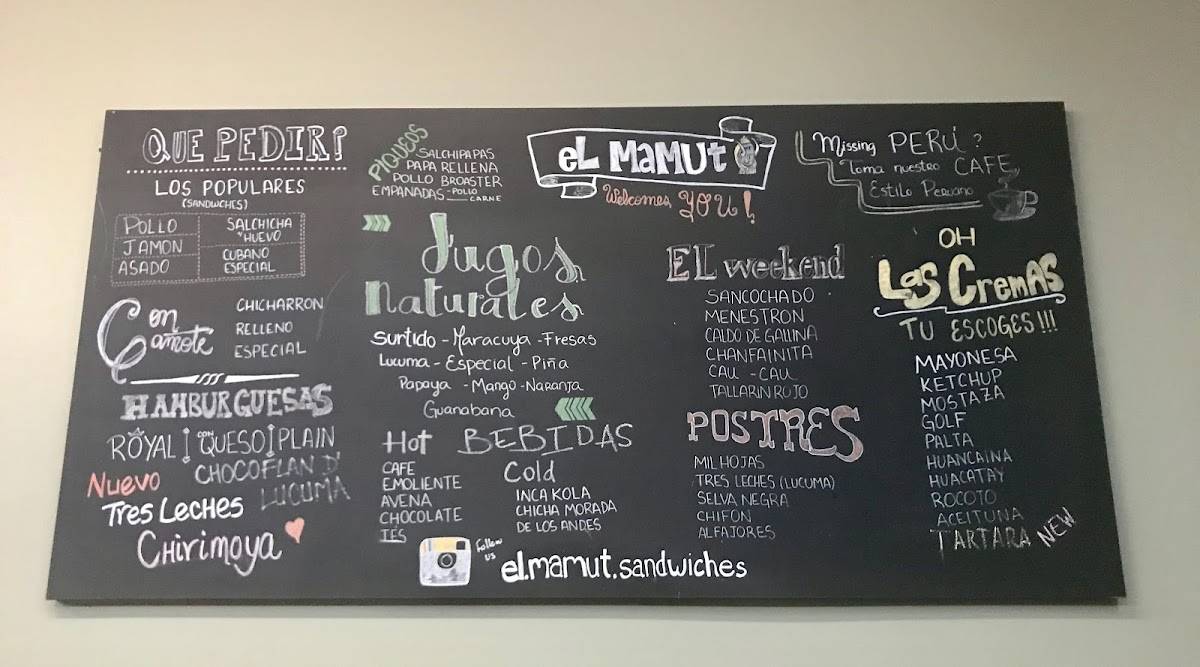 QUE PEDIR?
LOS POPULARES
(SANDWCHES)
POLLO
JAMON
ASADO
SALCHICHA
HUEVO
CUBANO
ESPECIAL
Con
Camote
CHICHARRON
RELLENO
ESPECIAL
HAMBURGUESAS
ROYAL CON QUESO PLAIN
NUEVO
CHOCOFLAN D'
LUCUMA
TRES LECHES
CHIRIMOYA
PIQUEOS
SALCHIPAPAS
PAPA RELLENA
POLLO BROASTER
EMPANADAS - POLLO
CARNE
Jugos
Naturales
Surtido - Maracuya - Fresas
Lucuma - Especial - Piña
Papaya - Mango - Naranja
Guanabana
Hot BEBIDAS
CAFE
EMOLIENTE
AVENA
CHOCOLATE
TES
Cold
INCA KOLA
CHICHA MORADA
DE LOS ANDES
Follow
us
el.mamut.sandwiches
eL MaMUt
Welcomes YOU!
EL weekend
SANCOCHADO
MENESTRON
CALDO DE GALLINA
CHANFAINITA
CAU - CAU
TALLARIN ROJO
POSTRES
MILHOJAS
TRES LECHES (LUCUMA)
SELVA NEGRA
CHIFON
ALFAJORES
Missing PERÚ?
Toma nuestro CAFE
Estilo Peruano
OH
Las CremAS
TU ESCOGES!!!
MAYONESA
KETCHUP
MOSTAZA
GOLF
PALTA
HUANCAINA
HUACATAY
ROCOTO
ACEITUNA
TARTARA NEW